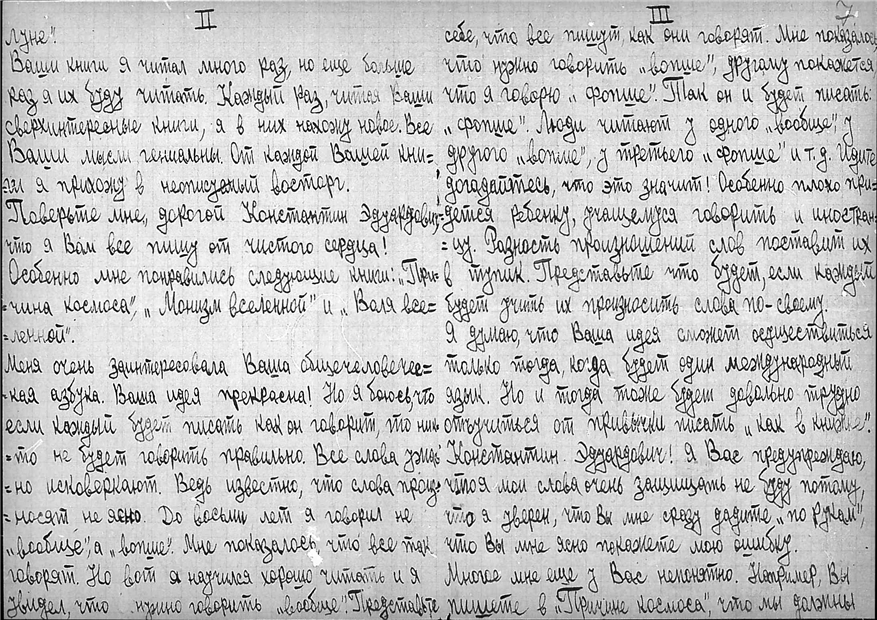 II
Луне".
Ваши книги я читал много раз, но еще больше
раз я их буду читать. Каждый раз, читая Ваши
сверхинтересные книги, я в них нахожу новое. Все
Ваши мысли гениальны. От каждой Вашей кни=
=ги я прихожу в неописуемый восторг.
Поверьте мне, дорогой Константин Эдуардович,
что я Вам все пишу от чистого сердца!
Особенно мне понравились следующие книги: „При=
=чина космоса", „Монизм вселенной" и „Воля все=
=ленной".
Меня очень заинтересовала Ваша общечеловечес=
=кая азбука. Ваша идея прекрасна! Но я боюсь, что
если каждый будет писать как он говорит, то ник=
=то не будет говорить правильно. Все слова ужас=
=но исковеркают. Ведь известно, что слова произ=
=носят не ясно. До восьми лет я говорил не
„вообще", а „вопше". Мне показалось, что все так
говорят. Но вот я научился хорошо читать и я
увидел, что нужно говорить „вообще"! Представьте
III
7
себе, что все пишут, как они говорят. Мне показалось,
что нужно говорить „вопше", другому покажется,
что я говорю „фопше". Так он и будет писать:
„фопше". Люди читают у одного „вообще", у
другого „вопше", у третьего „фопше" и т.д. Идите
догадайтесь, что это значит! Особенно плохо при=
=дется ребенку, учащемуся говорить и иностран=
=цу. Разность произношений слов поставит их
в тупик. Представьте что будет, если каждый
будет учить их произносить слова по-своему.
Я думаю, что Ваша идея сможет осуществиться
только тогда, когда будет один международный
язык. Но и тогда тоже будет довольно трудно
отъучиться от привычки писать „как в книжке".
Константин Эдуардович! Я Вас предупреждаю,
что я мои слова очень защищать не буду потому,
что я уверен, что Вы мне сразу дадите „по рукам",
что Вы мне ясно покажете мою ошибку.
Многое мне еще у Вас непонятно. Например, Вы
пишете в „Причине космоса", что мы должны